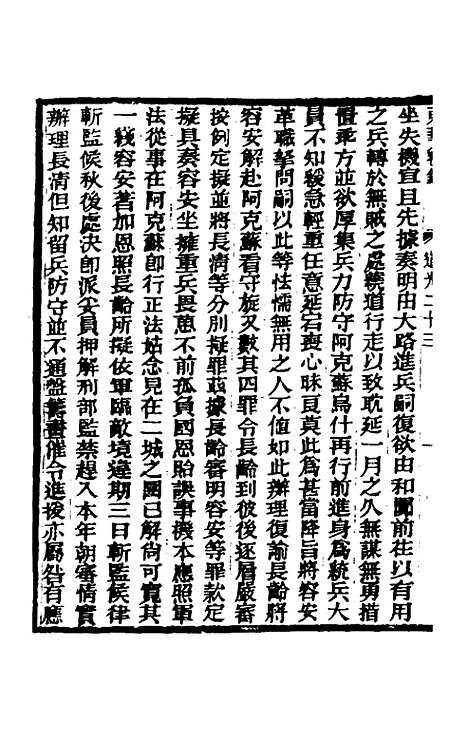 道光二十三
坐失機宜且先據奏明由大路進兵嗣復欲由和闐前往以有用
之兵轉於無賊之處繞道行走以致耽延一月之久無謀無勇措
置乖方並欲厚集兵力防守阿克蘇烏什再行前進身為統兵大
員不知緩急輕重任意延宕喪心昧良莫此為甚當降旨將容安
革職拏問嗣以此等怯懦無用之人不值如此辦理復諭長齡將
容安解赴阿克蘇看守旋又數其四罪令長齡到彼後逐層嚴審
按例定擬並將長清等分別擬罪茲據長齡審明容安等罪款定
擬具奏容安坐擁重兵畏葸不前孤負國恩貽誤事機本應照軍
法從事在阿克蘇即行正法姑念見在二城之圍已解尚可寬其
一綫容安著加恩照長齡所擬依軍臨敵境違期三日斬監候律
斬監候秋後處決即派妥員押解刑部監禁趕入本年朝審情實
辦理長清但知留兵防守並不通盤籌畫催令進援亦屬咎有應